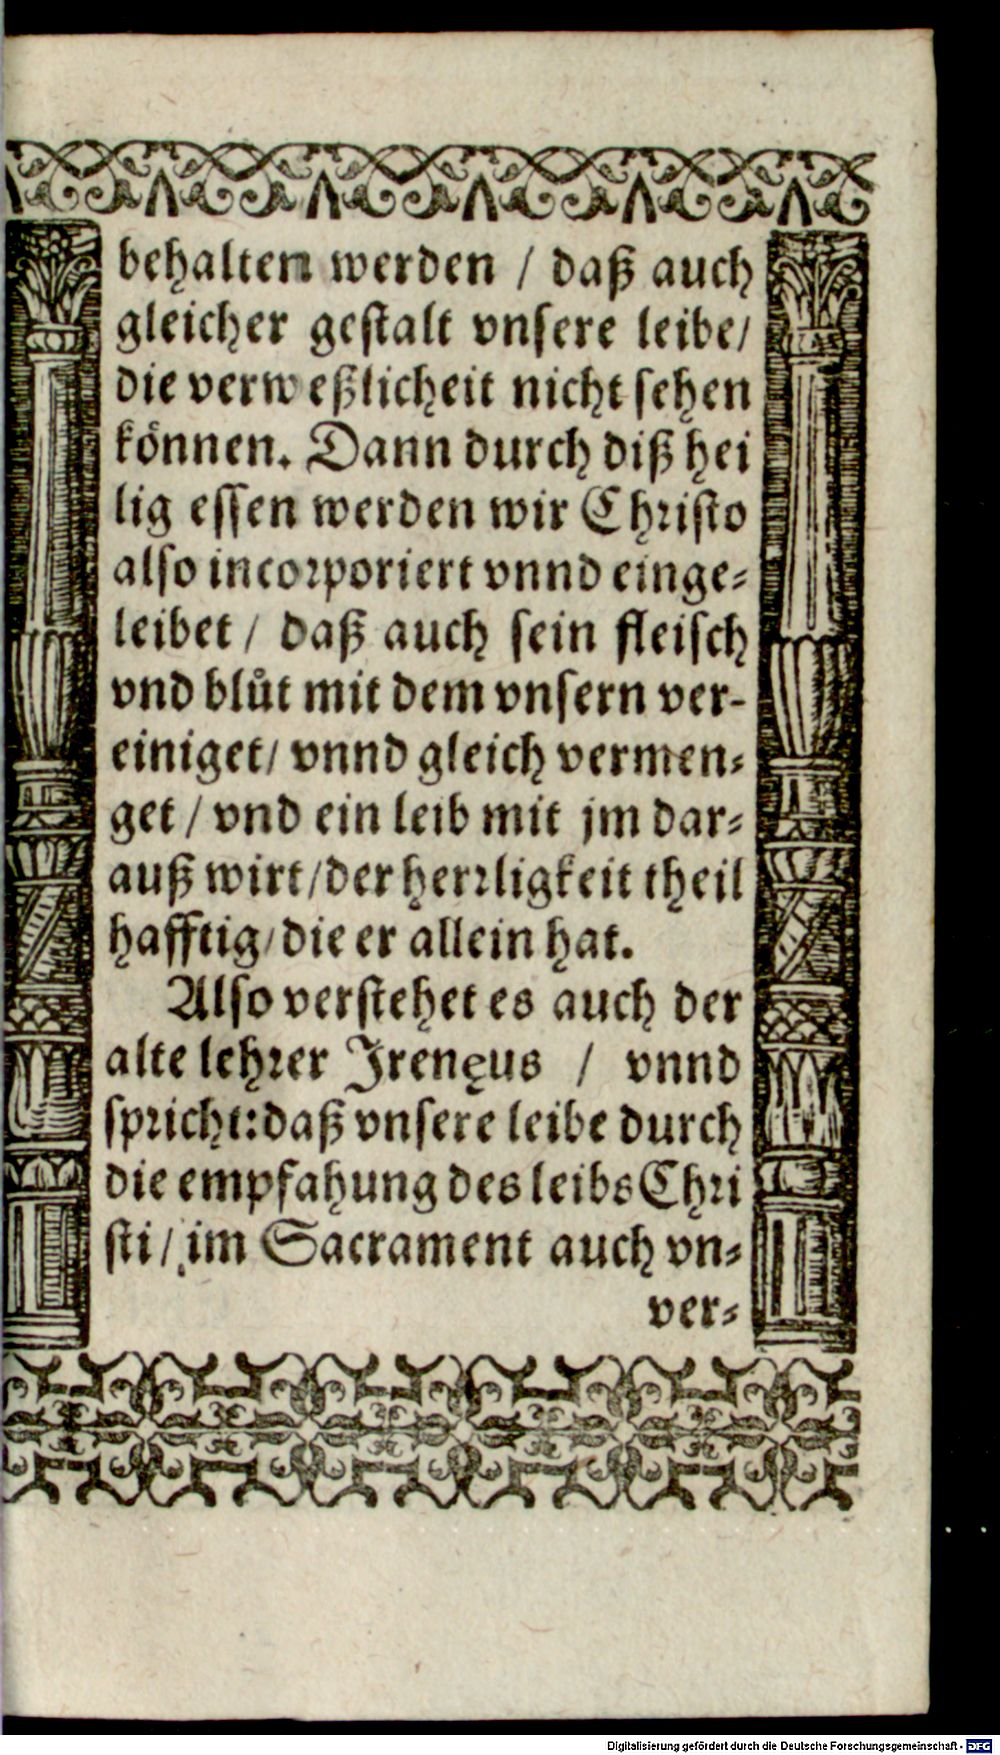 behalten werden / daß auch
gleicher gestalt vnsere leibe/
die verweßlicheit nicht sehen
können. Dann durch diß hei
lig essen werden wir Christo
also incorporiert vnnd einge⸗
leibet / daß auch sein fleisch
vnd blůt mit dem vnsern ver-
einiget/ vnnd gleich vermen⸗
get / vnd ein leib mit jm dar⸗
auß wirt/der herrligkeit theil
hafftig/die er allein hat.
Also verstehet es auch der
alte lehrer Irenęus / vnnd
spricht:daß vnsere leibe durch
die empfahung des leibs Chri
sti / im Sacrament auch vn⸗
ver⸗
Digitalisierung gefördert durch die Deutsche Forschungsgemeinschaft - DFG